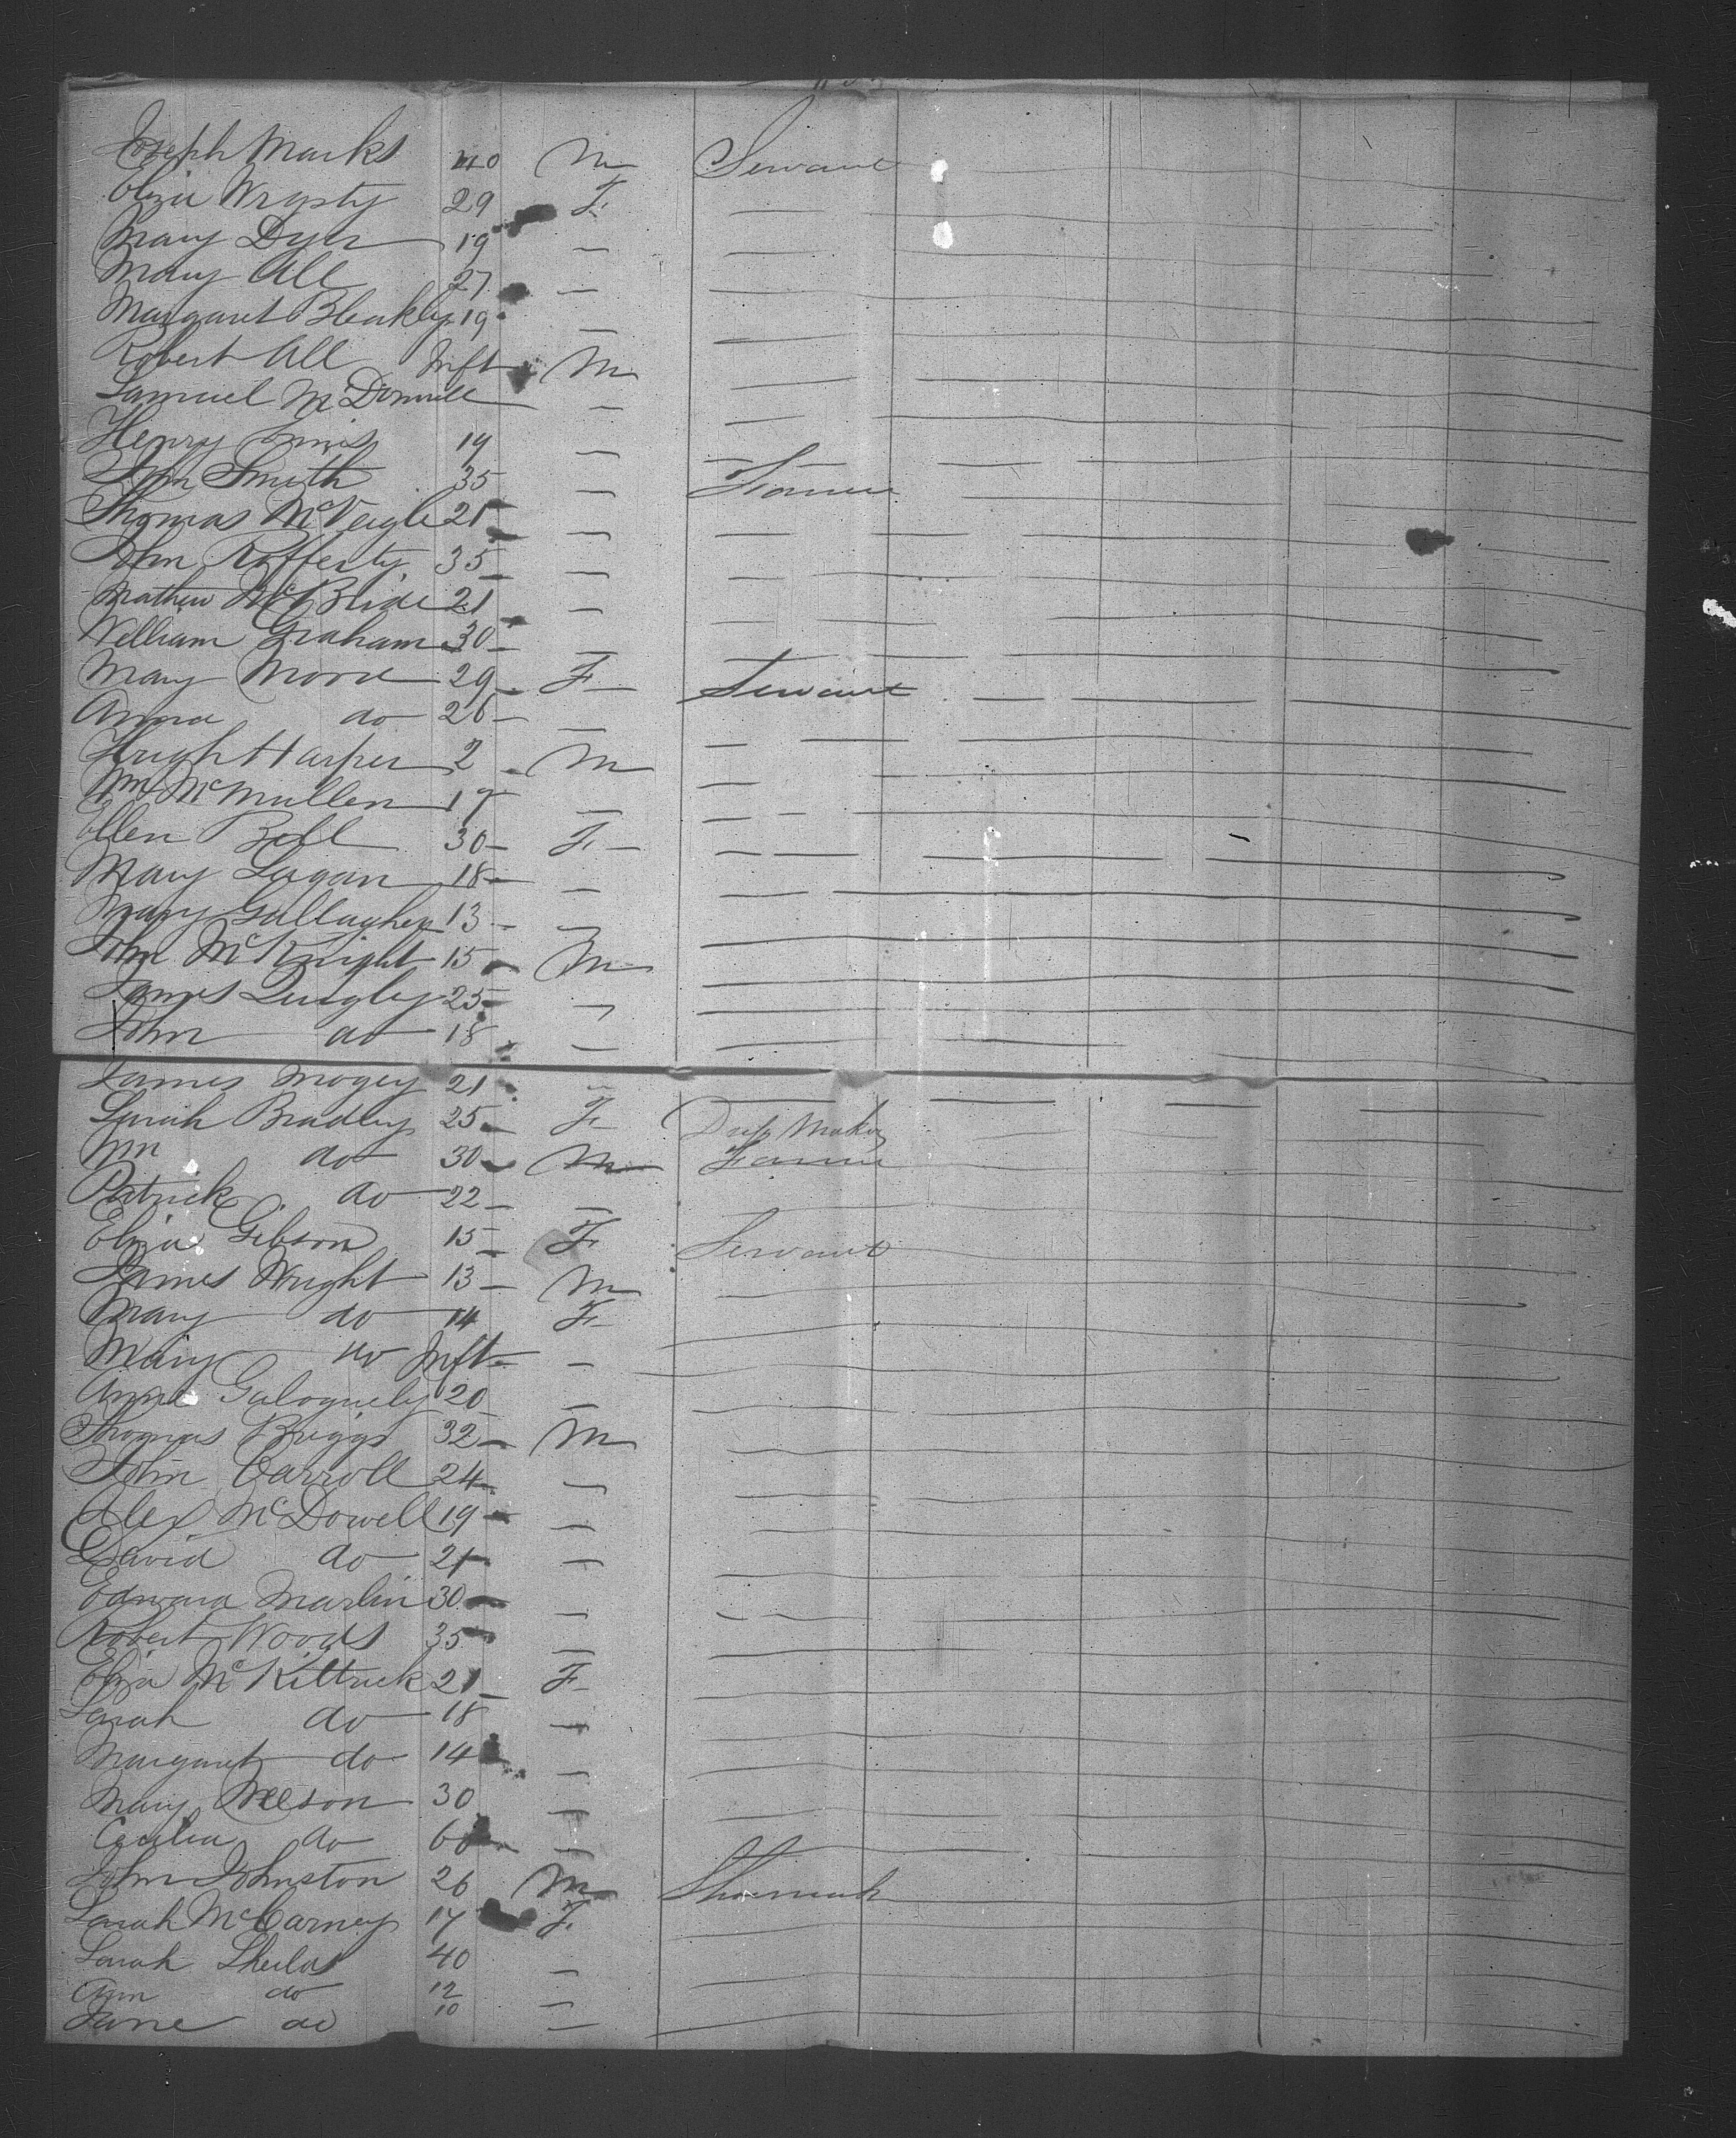 Joseph Marks 40 M Servant
Eliza Wrysty 29 F
Mary Dyer 19 —
Mary All 27 —
Margaret Bleakley 19 —
Robert All Inft M
Samuel McDonnell —
Henry Ennis 19 —
John Smith 35 — Farmer
Thomas McVeigh 21 —
John Rafferty 35 —
Mathew McBride 21 —
William Graham 30 —
Mary Moore 29 F Servant
Anna do 26 —
Hugh Harper 2 M
Wm McMullen 17 —
Ellen Bell 30 F
Mary Lagan 18 —
Mary Gallagher 13 —
John McKnight 15 M
James Quigley 25 —
John do 18 —
James Mogey 21 —
Sarah Bradley 25 F Dress Maker
Wm do 30 M Farmer
Patrick do 22 —
Eliza Gibson 15 F Servant
James Wright 13 M
Mary do 14 F
Mary do Inft —
Anna 20 —
Thomas Briggs 32 M
John Carroll 24 —
Alex McDowell 19 —
David do 21 —
Edward Marlin 30 —
Robert Woods 35 —
Eliza McKittrick 21 F
Sarah do 18 —
Margaret do 14 —
Mary Neeson 30 —
Cecilia do 60 —
John Johnston 26 M Shoemak
Sarah McCarney 17 F
Sarah Sheilds 40 —
Ann do 12 —
Jane do 10 —